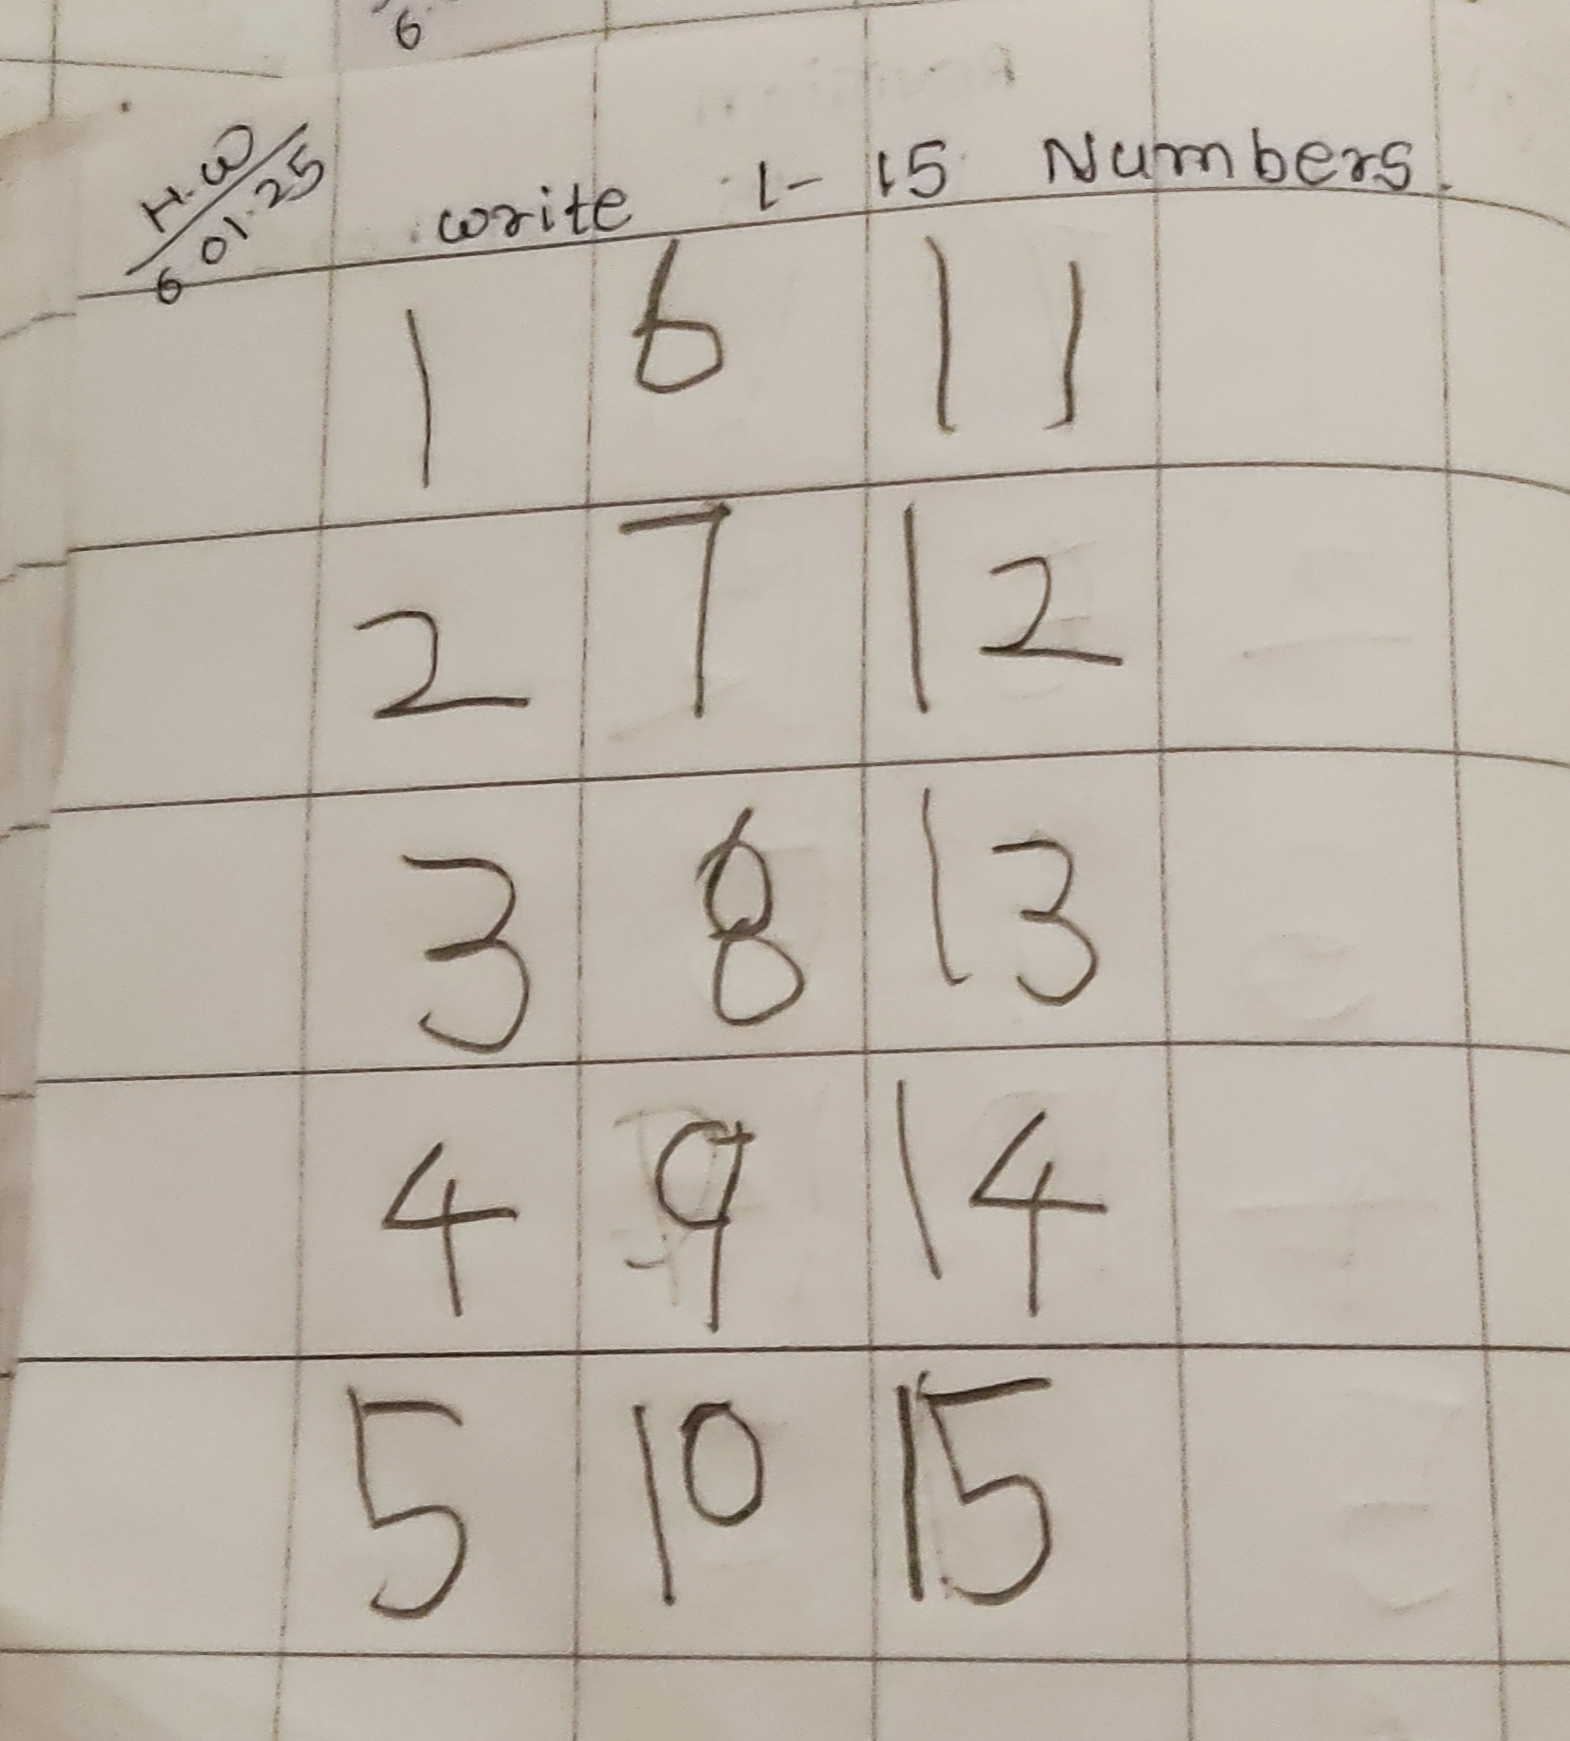 6
H.W
6 01.25
write 1- 15 Numbers.
1 6 11
2 7 12
3 8 13
4 9 14
5 10 15